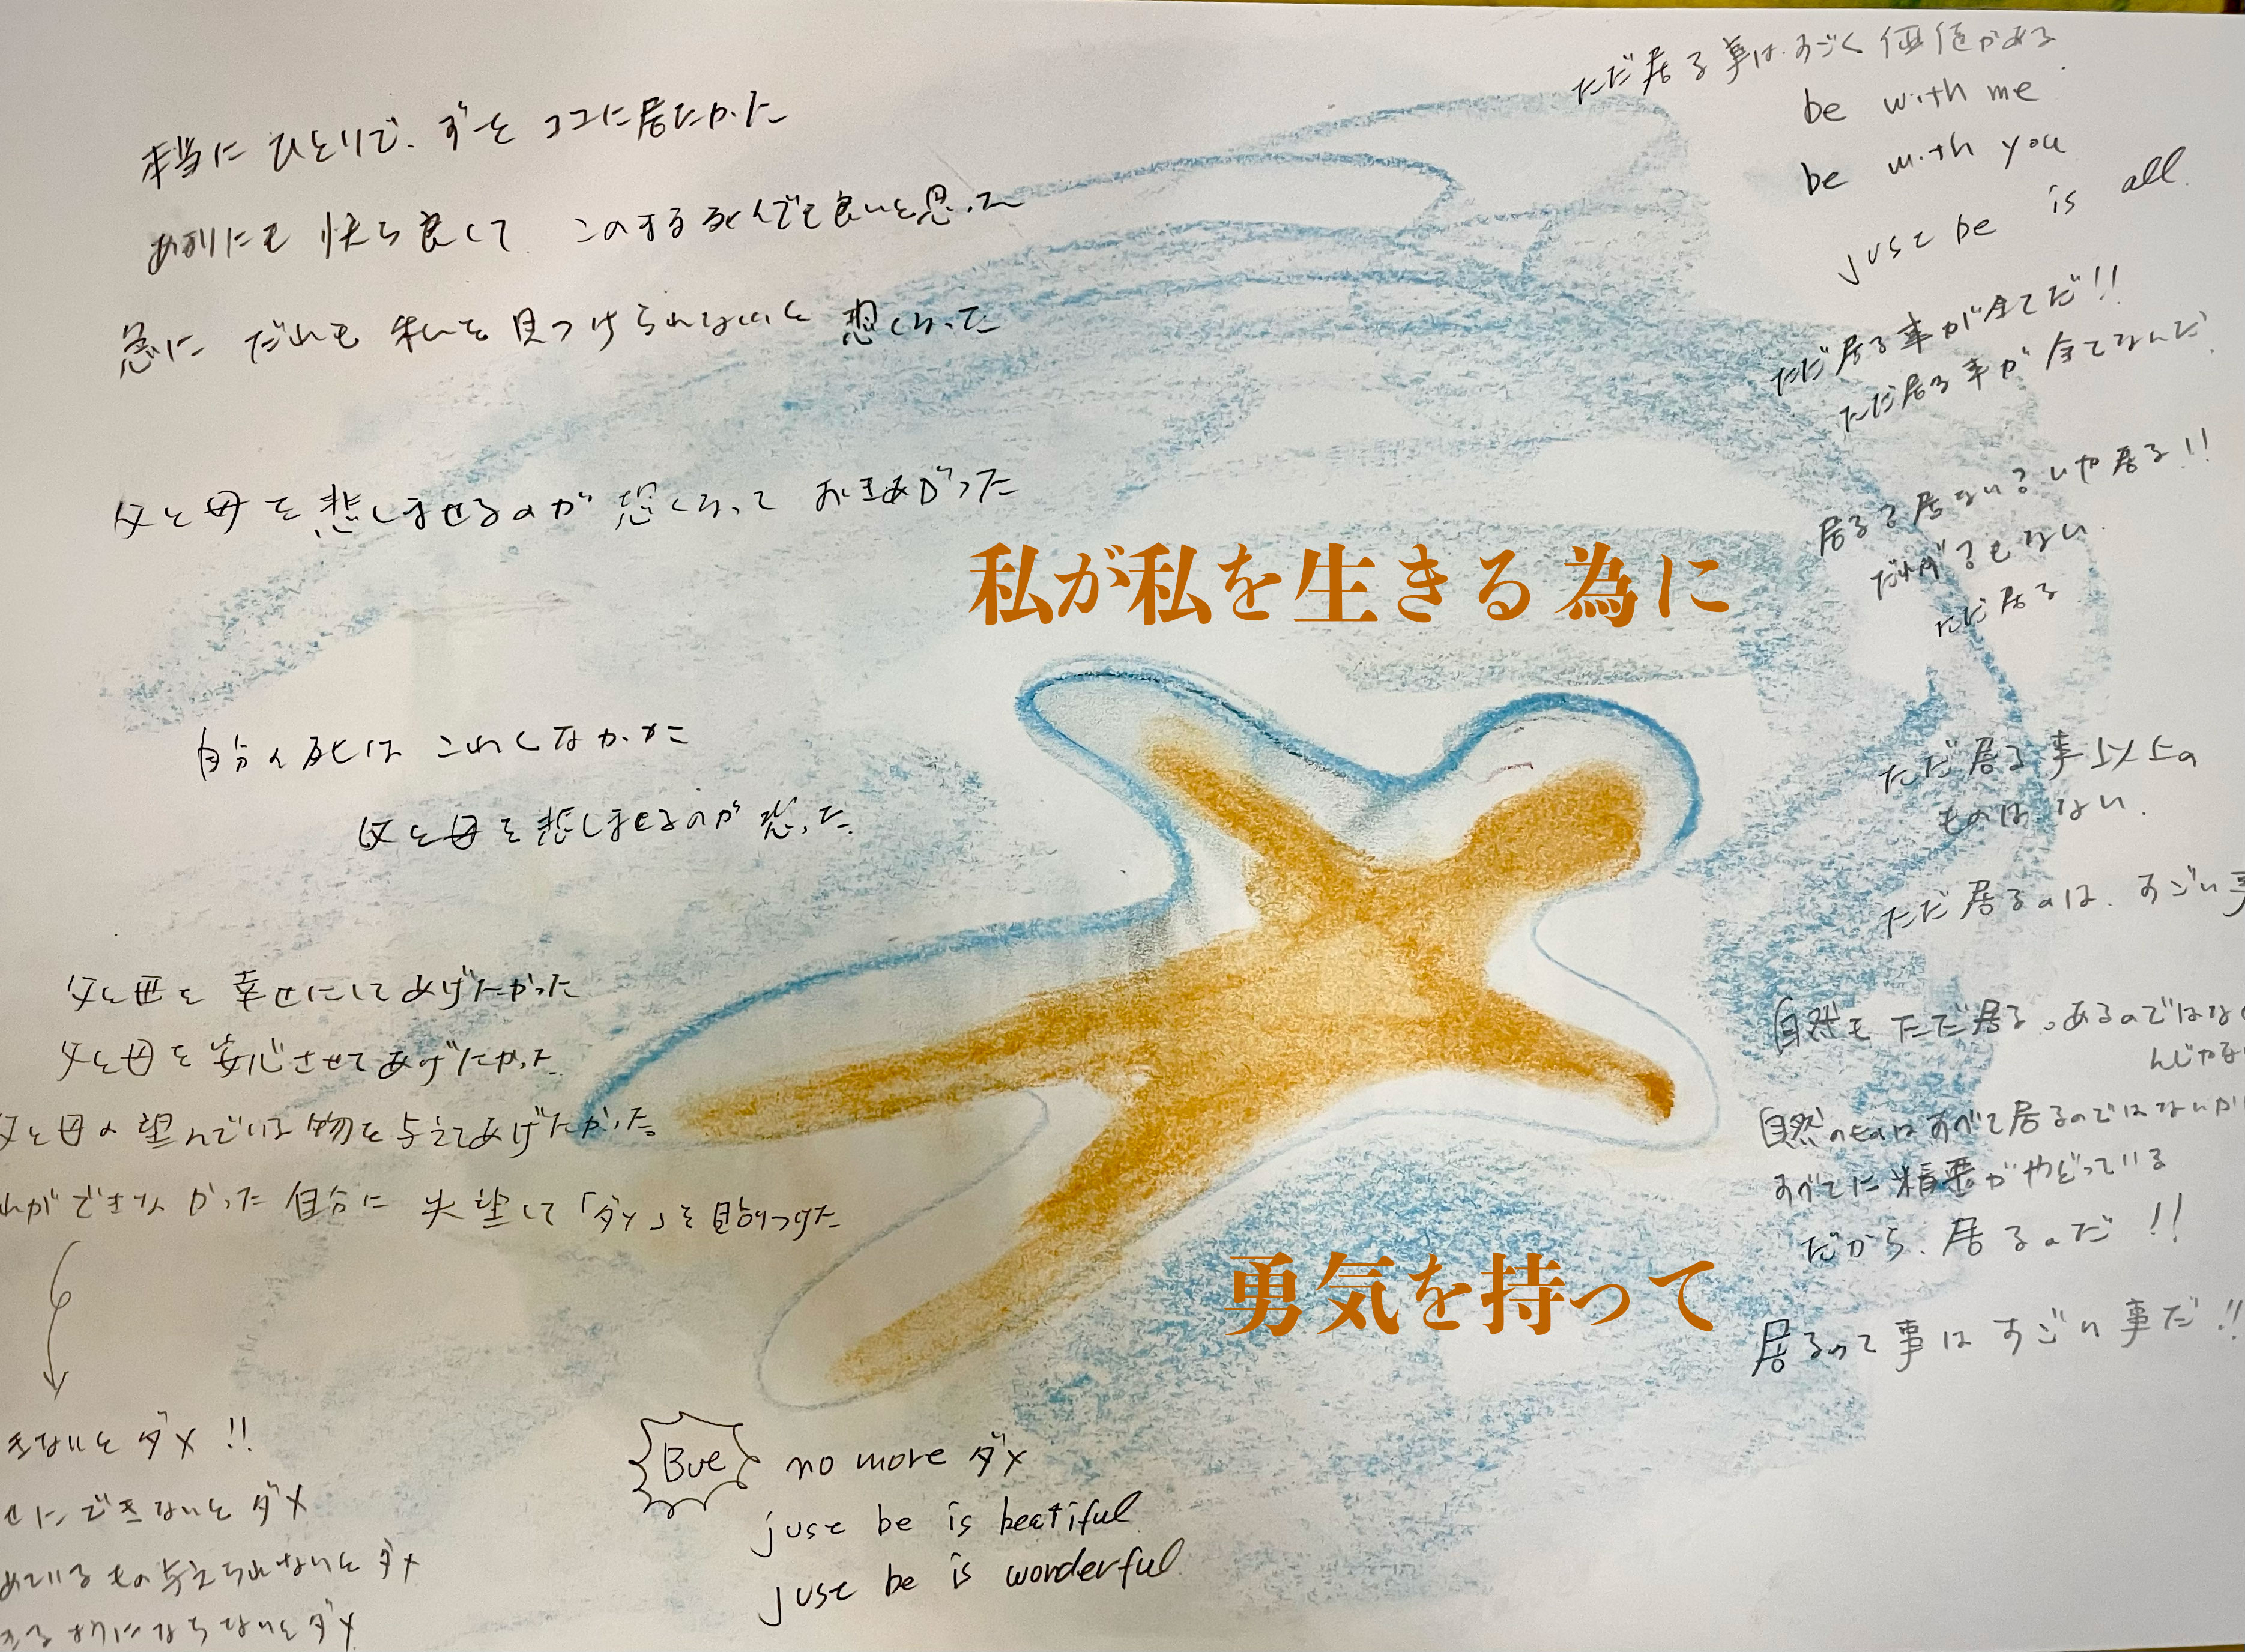 本当に ひとりで、ずーと ココに居たかった
あまりにも 快ち良くて このまま死んでも良いと思った
急に だれも 私を 見つけられないと 恐くなった
父と母を悲しませるのが 恐くなって おきあがった
自分の死は こわくなかった
父と母を悲しませるのが 恐かった
父と母を 幸せにして あげたかった
父と母を 安心させて あげたかった
父と母の望んでいる物を与えてあげたかった。
れができなかった 自分に 失望して「ダメ」を貼りつけた
きないと ダメ !!
せに できないと ダメ
めているもの 与えられないと ダメ
きる ように ならないと ダメ
Bue no more ダメ
just be is beatiful
just be is wonderful
私が私を生きる為に
勇気を持って
ただ居る事は すごく 価値がある
be with me
be with you
just be is all.
ただ居る事が全てだ!!
ただ居る事が 全てなんだ
居る?居ない?いや居る!!
ない
ただ居る
ただ居る事以上の
ものは ない.
ただ居るのは、すごい事
自然も ただ居る。あるのではな
んじゃな
自然のものはすべて居るのではないか
すべてに精霊がやどっている
だから、居るのだ !!
居るって事は すごい事だ !!